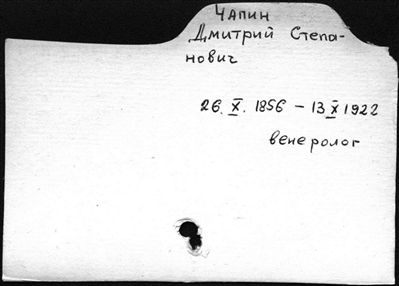 Чапин
Дмитрий Степа-
нович
26. X. 1856 – 13 X 1922
венеролог